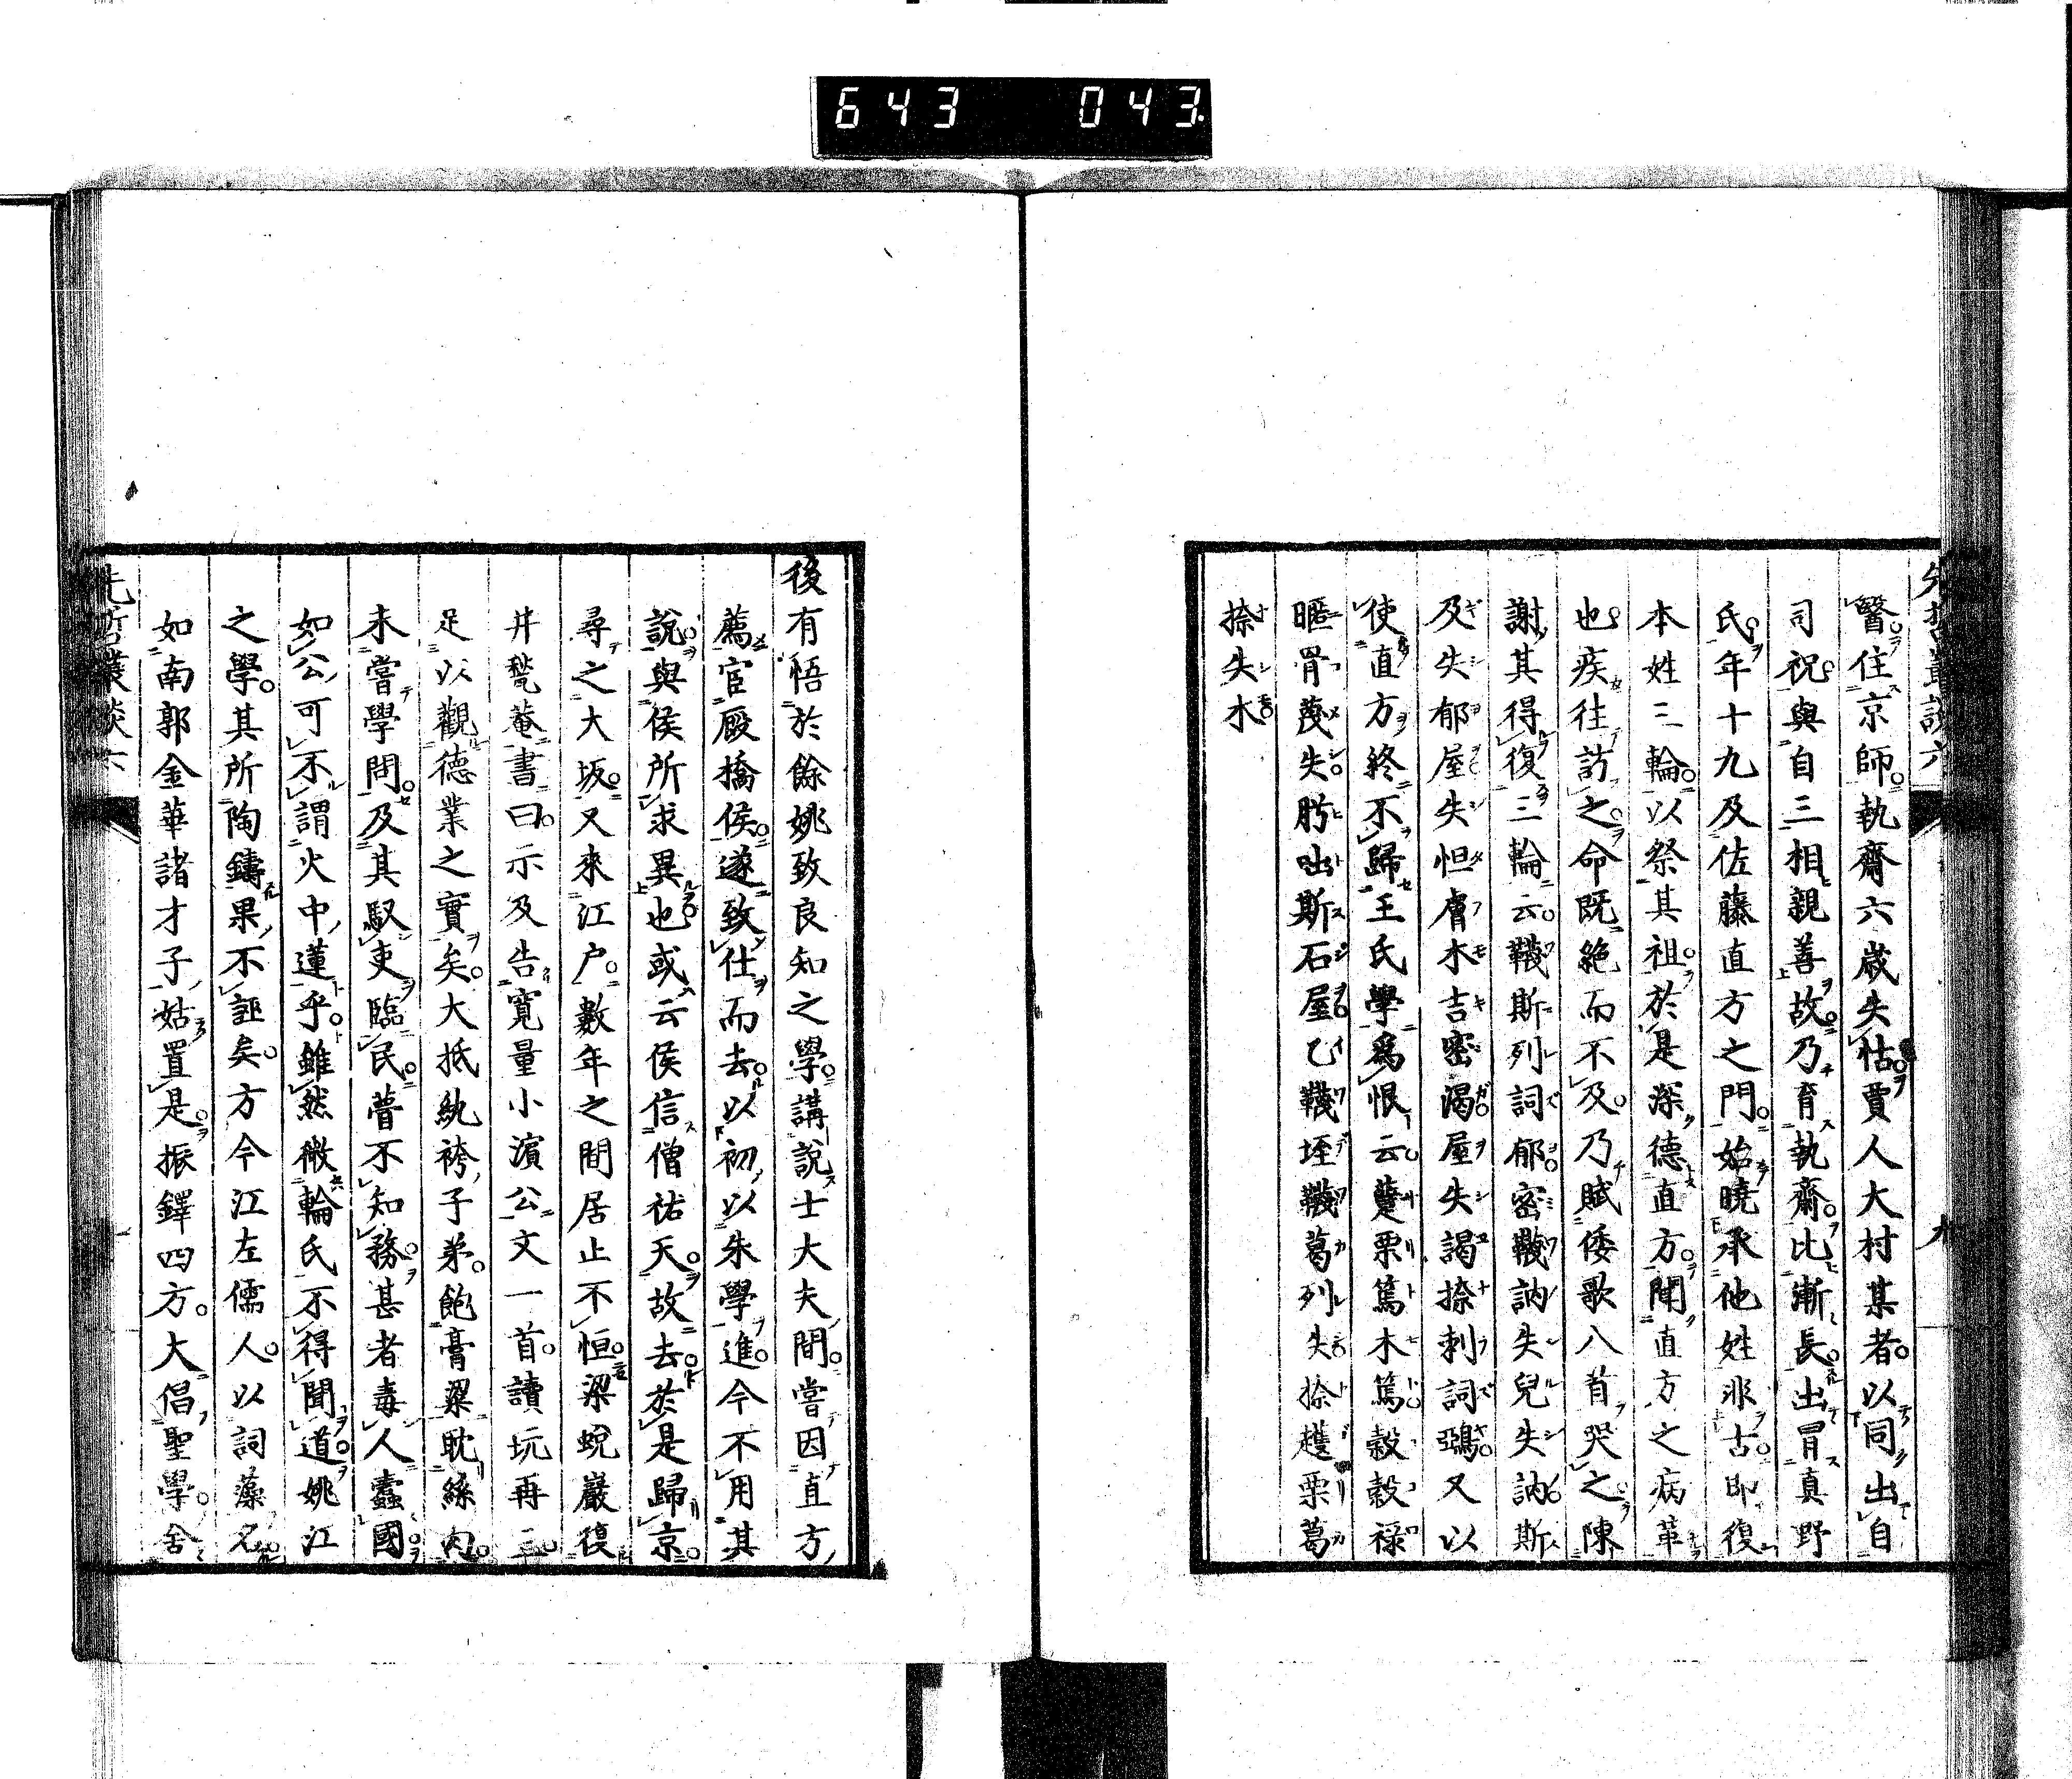 643 043
先哲叢談六
九
醫住京師執齋六歲失怙賈人大村某者以同出自
司祝與自三相親善故乃育執齋比漸長出冐真野
氏年十九及佐藤直方之門始曉承他姓非古即復
本姓三輪以祭其祖於是深德直方聞直方之病革
也疾往訪之命既絶而不及乃賦倭歌八首哭之陳
謝其得復三輪云韈斯列詞郁密韈訥失兒失訥斯
及失郁屋失怛膚木吉密渴屋失謁捺刺詞鵶又以
使直方終不歸王氏學爲恨云蹇栗篤木篤穀穀祿
暱骨蔑失肹咄斯石屋乙韈垤韈葛列失捺趯栗葛
捺失木
後有悟於餘姚致良知之學講說士大夫間嘗因直方
薦宦厩橋侯遂致仕而去以初以朱學進今不用其
說與侯所求異也或云侯信僧祐天故去於是歸京
尋之大坂又來江戶數年之間居止不恒梁蛻巖復
井甃菴書曰示及告寬量小濵公文一首讀玩再三
足以觀德業之實矣大抵紈袴子弟飽膏粱耽絲肉
未嘗學問及其馭吏臨民瞢不知務甚者毒人蠹國
如公可不謂火中蓮乎雖然微輪氏不得聞道姚江
之學其所陶鑄果不誣矣方今江左儒人以詞藻名
如南郭金華諸才子姑置是振鐸四方大倡聖學舍
先哲叢談六